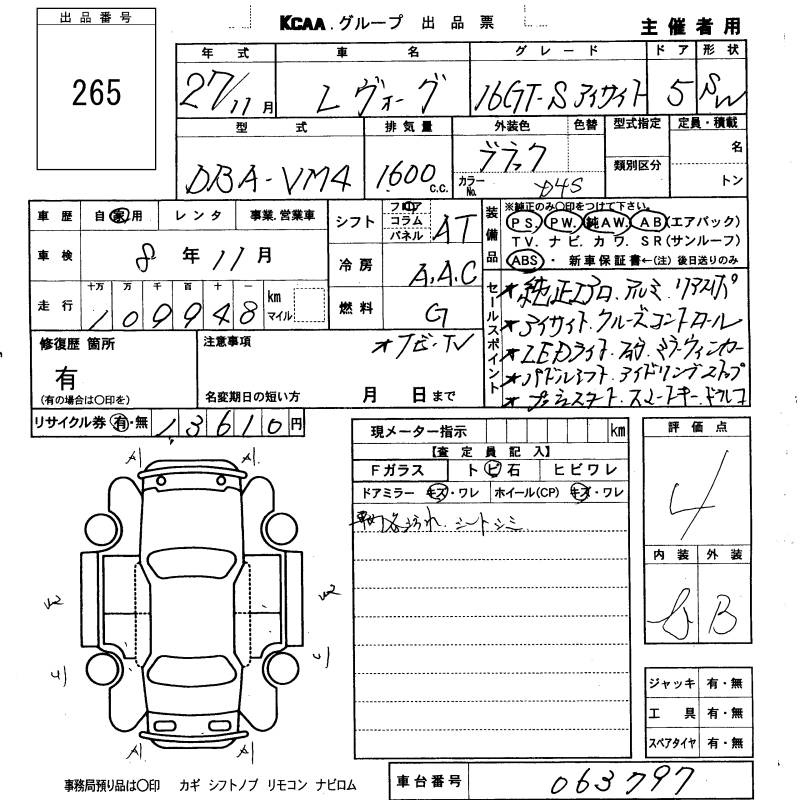 出品番号
265
KCAA.グループ 出品票
主催者用
年式 車名 グレード ドア 形状
27/11月 レヴォーグ 16GT-S アイサイト 5 SW
型式 排気量 外装色 色替 型式指定 定員・積載
DBA-VM4 1600 c.c. ブラック 名
カラーNo. D4S 類別区分 トン
車歴 自家用 レンタ 事業.営業車
シフト フロア コラム パネル AT
装備品 ※純正のみ〇印をつけて下さい。
PS. PW. 純AW. AB(エアバック)
TV. ナビ. カワ. SR(サンルーフ)
ABS・ 新車保証書←(注) 後日送りのみ
車検 8年11月
冷房 A.A.C
走行 十万 万 千 百 十 一
109948 km マイル
燃料 G
セールスポイント
★純正エアロ アルミ リアスポ
★アイサイト クルーズコントロール
★LEDライト フォグ ミラーウィンカー
★パドルシフト アイドリングストップ
★プッシュスタート スマートキー ドラレコ
修復歴 箇所
有
(有の場合は〇印を)
注意事項
ナビ・TV
名変期日の短い方 月 日まで
リサイクル券 有・無 13610円
現メーター指示 km
【査定員記入】
Fガラス トビ石 ヒビワレ
ドアミラー キズ・ワレ ホイール(CP) キズ・ワレ
シートシミ
評価点
4
内装 外装
B
A1 A1
A1 A1
ジャッキ 有・無
工具 有・無
スペアタイヤ 有・無
事務局預り品は〇印 カギ シフトノブ リモコン ナビロム
車台番号 063797